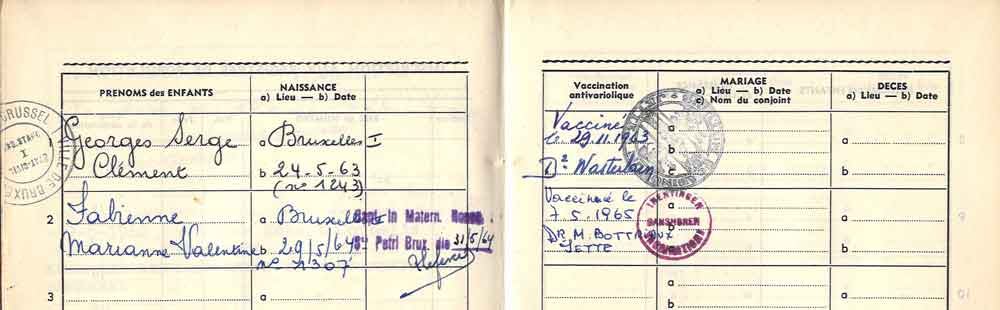 PRENOMS des ENFANTS
NAISSANCE
a) Lieu — b) Date
Georges Serge
Clément
a Bruxelles I
b 24-5-63
(n° 1243)
2
Fabienne
Marianne Valentine
a Bruxelles
Bapt. in Matern.
b 29/5/64
Sti Petri Brux. die 31/5/64
n° 1307
3
a
Vaccination
antivariolique
MARIAGE
a) Lieu — b) Date
c) Nom du conjoint
DECES
a) Lieu — b) Date
Vacciné
le 29.11.1963
a
b
c
a
b
Vacciné le
7.5.1965
DR. M. BOTTRIAUX
JETTE
GANSHOREN
a
b
a
b
a
BRUSSEL
VILLE DE BRUX